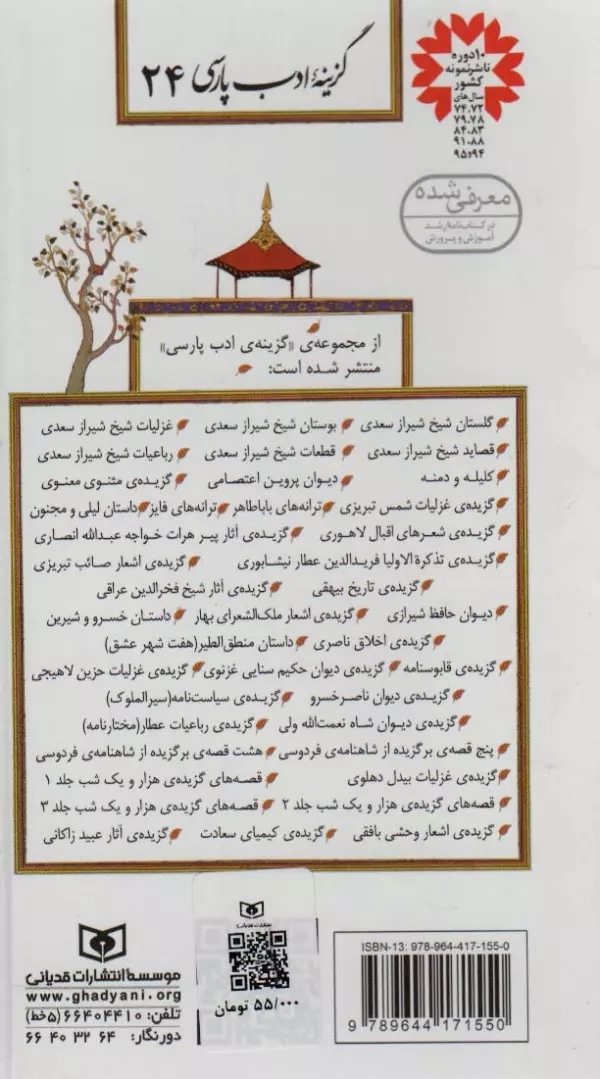 گزینهٔ ادب پارسی ۲۴
۱۰ دوره
ناشر نمونه
کشور
سال‌های
۷۴،۷۲
۷۹،۷۸
۸۴،۸۳
۹۱،۸۸
۹۴و۹۵
معرفی شده
در کتاب‌نامه رشد
آموزش و پرورش
از مجموعه‌ی «گزینه‌ی ادب پارسی»
منتشر شده است:
گلستان شیخ شیراز سعدی بوستان شیخ شیراز سعدی غزلیات شیخ شیراز سعدی
قصاید شیخ شیراز سعدی قطعات شیخ شیراز سعدی رباعیات شیخ شیراز سعدی
کلیله و دمنه دیوان پروین اعتصامی گزیده‌ی مثنوی معنوی
گزیده‌ی غزلیات شمس تبریزی ترانه‌های باباطاهر ترانه‌های فایز داستان لیلی و مجنون
گزیده‌ی شعرهای اقبال لاهوری گزیده‌ی آثار پیر هرات خواجه عبدالله انصاری
گزیده‌ی تذکرة الاولیا فریدالدین عطار نیشابوری گزیده‌ی اشعار صائب تبریزی
گزیده‌ی تاریخ بیهقی گزیده‌ی آثار شیخ فخرالدین عراقی
دیوان حافظ شیرازی گزیده‌ی اشعار ملک‌الشعرای بهار داستان خسرو و شیرین
گزیده‌ی اخلاق ناصری داستان منطق‌الطیر(هفت شهر عشق)
گزیده‌ی قابوسنامه گزیده‌ی دیوان حکیم سنایی غزنوی گزیده‌ی غزلیات حزین لاهیجی
گزیده‌ی دیوان ناصرخسرو گزیده‌ی سیاست‌نامه(سیرالملوک)
گزیده‌ی دیوان شاه نعمت‌الله ولی گزیده‌ی رباعیات عطار(مختارنامه)
پنج قصه‌ی برگزیده از شاهنامه‌ی فردوسی هشت قصه‌ی برگزیده از شاهنامه‌ی فردوسی
گزیده‌ی غزلیات بیدل دهلوی قصه‌های گزیده‌ی هزار و یک شب جلد ۱
قصه‌های گزیده‌ی هزار و یک شب جلد ۲ قصه‌های گزیده‌ی هزار و یک شب جلد ۳
گزیده‌ی اشعار وحشی بافقی گزیده‌ی کیمیای سعادت گزیده‌ی آثار عبید زاکانی
ISBN-13: 978-964-417-155-0
9 789644 171550
۵۵/۰۰۰ تومان
موسسهٔ انتشارات قدیانی
www.ghadyani.org
تلفن: ۶۶۴۰۴۴۱۰ (۵ خط)
دورنگار: ۶۶ ۴۰ ۳۲ ۶۴